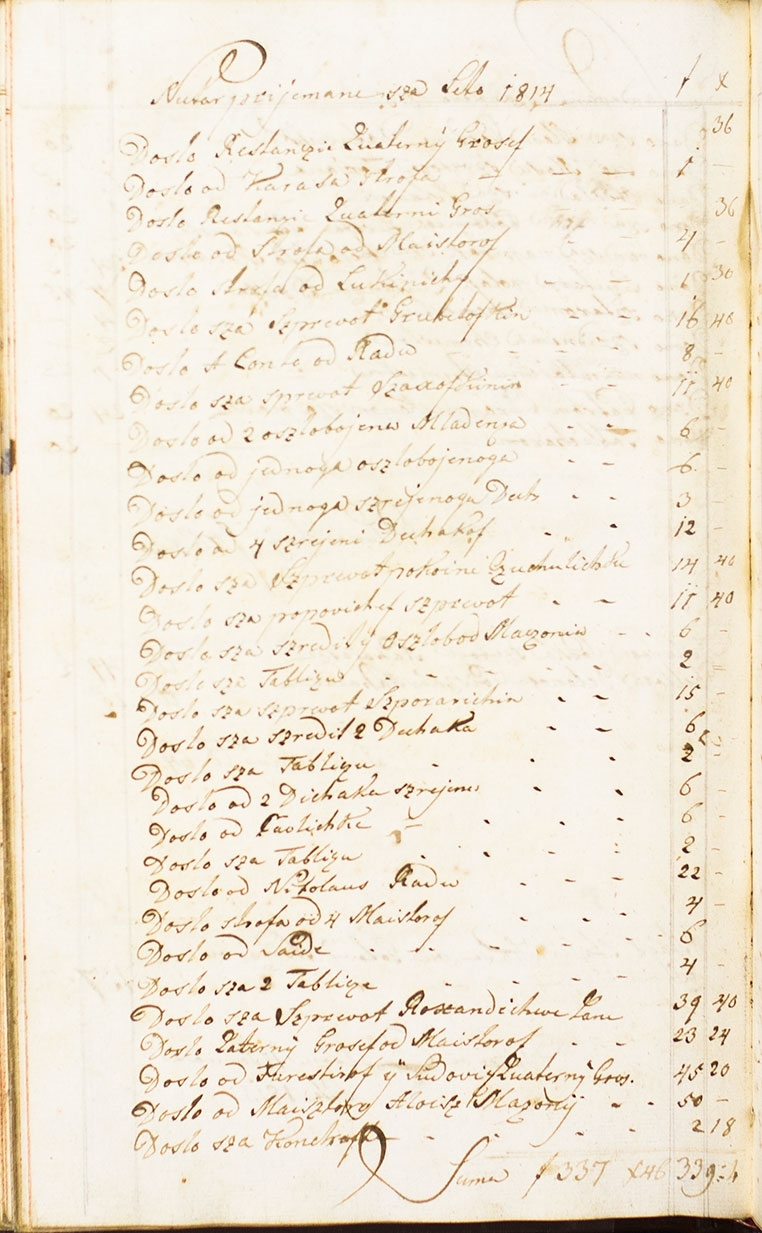 Nutar prijemane sza Leto 1814 f x
Doslo Restanzie Quaterny Grosef 36
Doslo od Karasa strofa - - - 1 -
Doslo Restanzie Quaterni Gros - 36
Doslo od Strofa od Maistorof - - 4 -
Doslo strofa od Lukinich - - 1 30
Doslo sza Szprewot Grubetofkin - - 16 40
Doslo A Conto od Radu - - - 8 -
Doslo sza sprewot - - 11 40
Doslo od 2 oszlobojena Mladenza - - 6 -
Doslo od jednoga oszlobojenoga - - 6 -
Doslo od jednoga szrejenoga Deth - - 3 -
Doslo od 4 szrejeni Dechakof - - 12 -
Doslo sza Szprewot pokoine 14 40
Doslo sza popovichef szprewot - - 11 40
Doslo sza szredity oszlobod - - 6 -
Doslo sza Tablizu - - - 2 -
Doslo sza szprewot Szporarichin - - 15 -
Doslo sza szredit 2 Dechaka - - 6 -
Doslo sza Tablizu - - - 2 -
Doslo od 2 Dichaka szrejene - - 6 -
Doslo od - - - 6 -
Doslo sza Tablizu - - - 2 -
Doslo od Nikolaus Radu - - - 22 -
Doslo strofa od 4 Maistorof - - - 4 -
Doslo od - - - 6
Doslo sza 2 Tablize - - - 4 -
Doslo sza Szprewot Roxandichwe 39 40
Doslo Quaterny Grosef od Maistorof - - 23 24
Doslo od Furestirof y Ludoviz Quaterny Gros. 45 20
Doslo od Maisztory Aloisz - - 50 -
Doslo sza - - - 2 18
Suma f 337 x 46 339:4